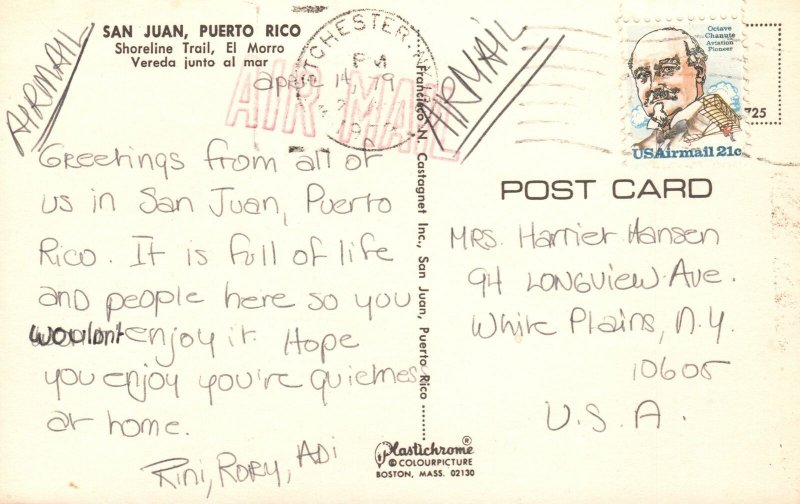 SAN JUAN, PUERTO RICO
Shoreline Trail, El Morro
Vereda junto al mar
AIRMAIL
AIR MAIL
April 14,
PM
AIRMAIL
Octave
Chanute
Aviation
Pioneer
USAirmail 21c
725
Greetings from all of
us in San Juan, Puerto
Rico. It is full of life
and people here so you
wouldnt enjoy it. Hope
you enjoy you're quietness
at home.
Rini, Rory, Adi
Francisco N. Castagnet Inc., San Juan, Puerto Rico
POST CARD
Mrs. Harriet Hansen
94 Longview Ave.
White Plains, N.Y.
10605
U.S.A.
Plastichrome®
© COLOURPICTURE
BOSTON, MASS. 02130